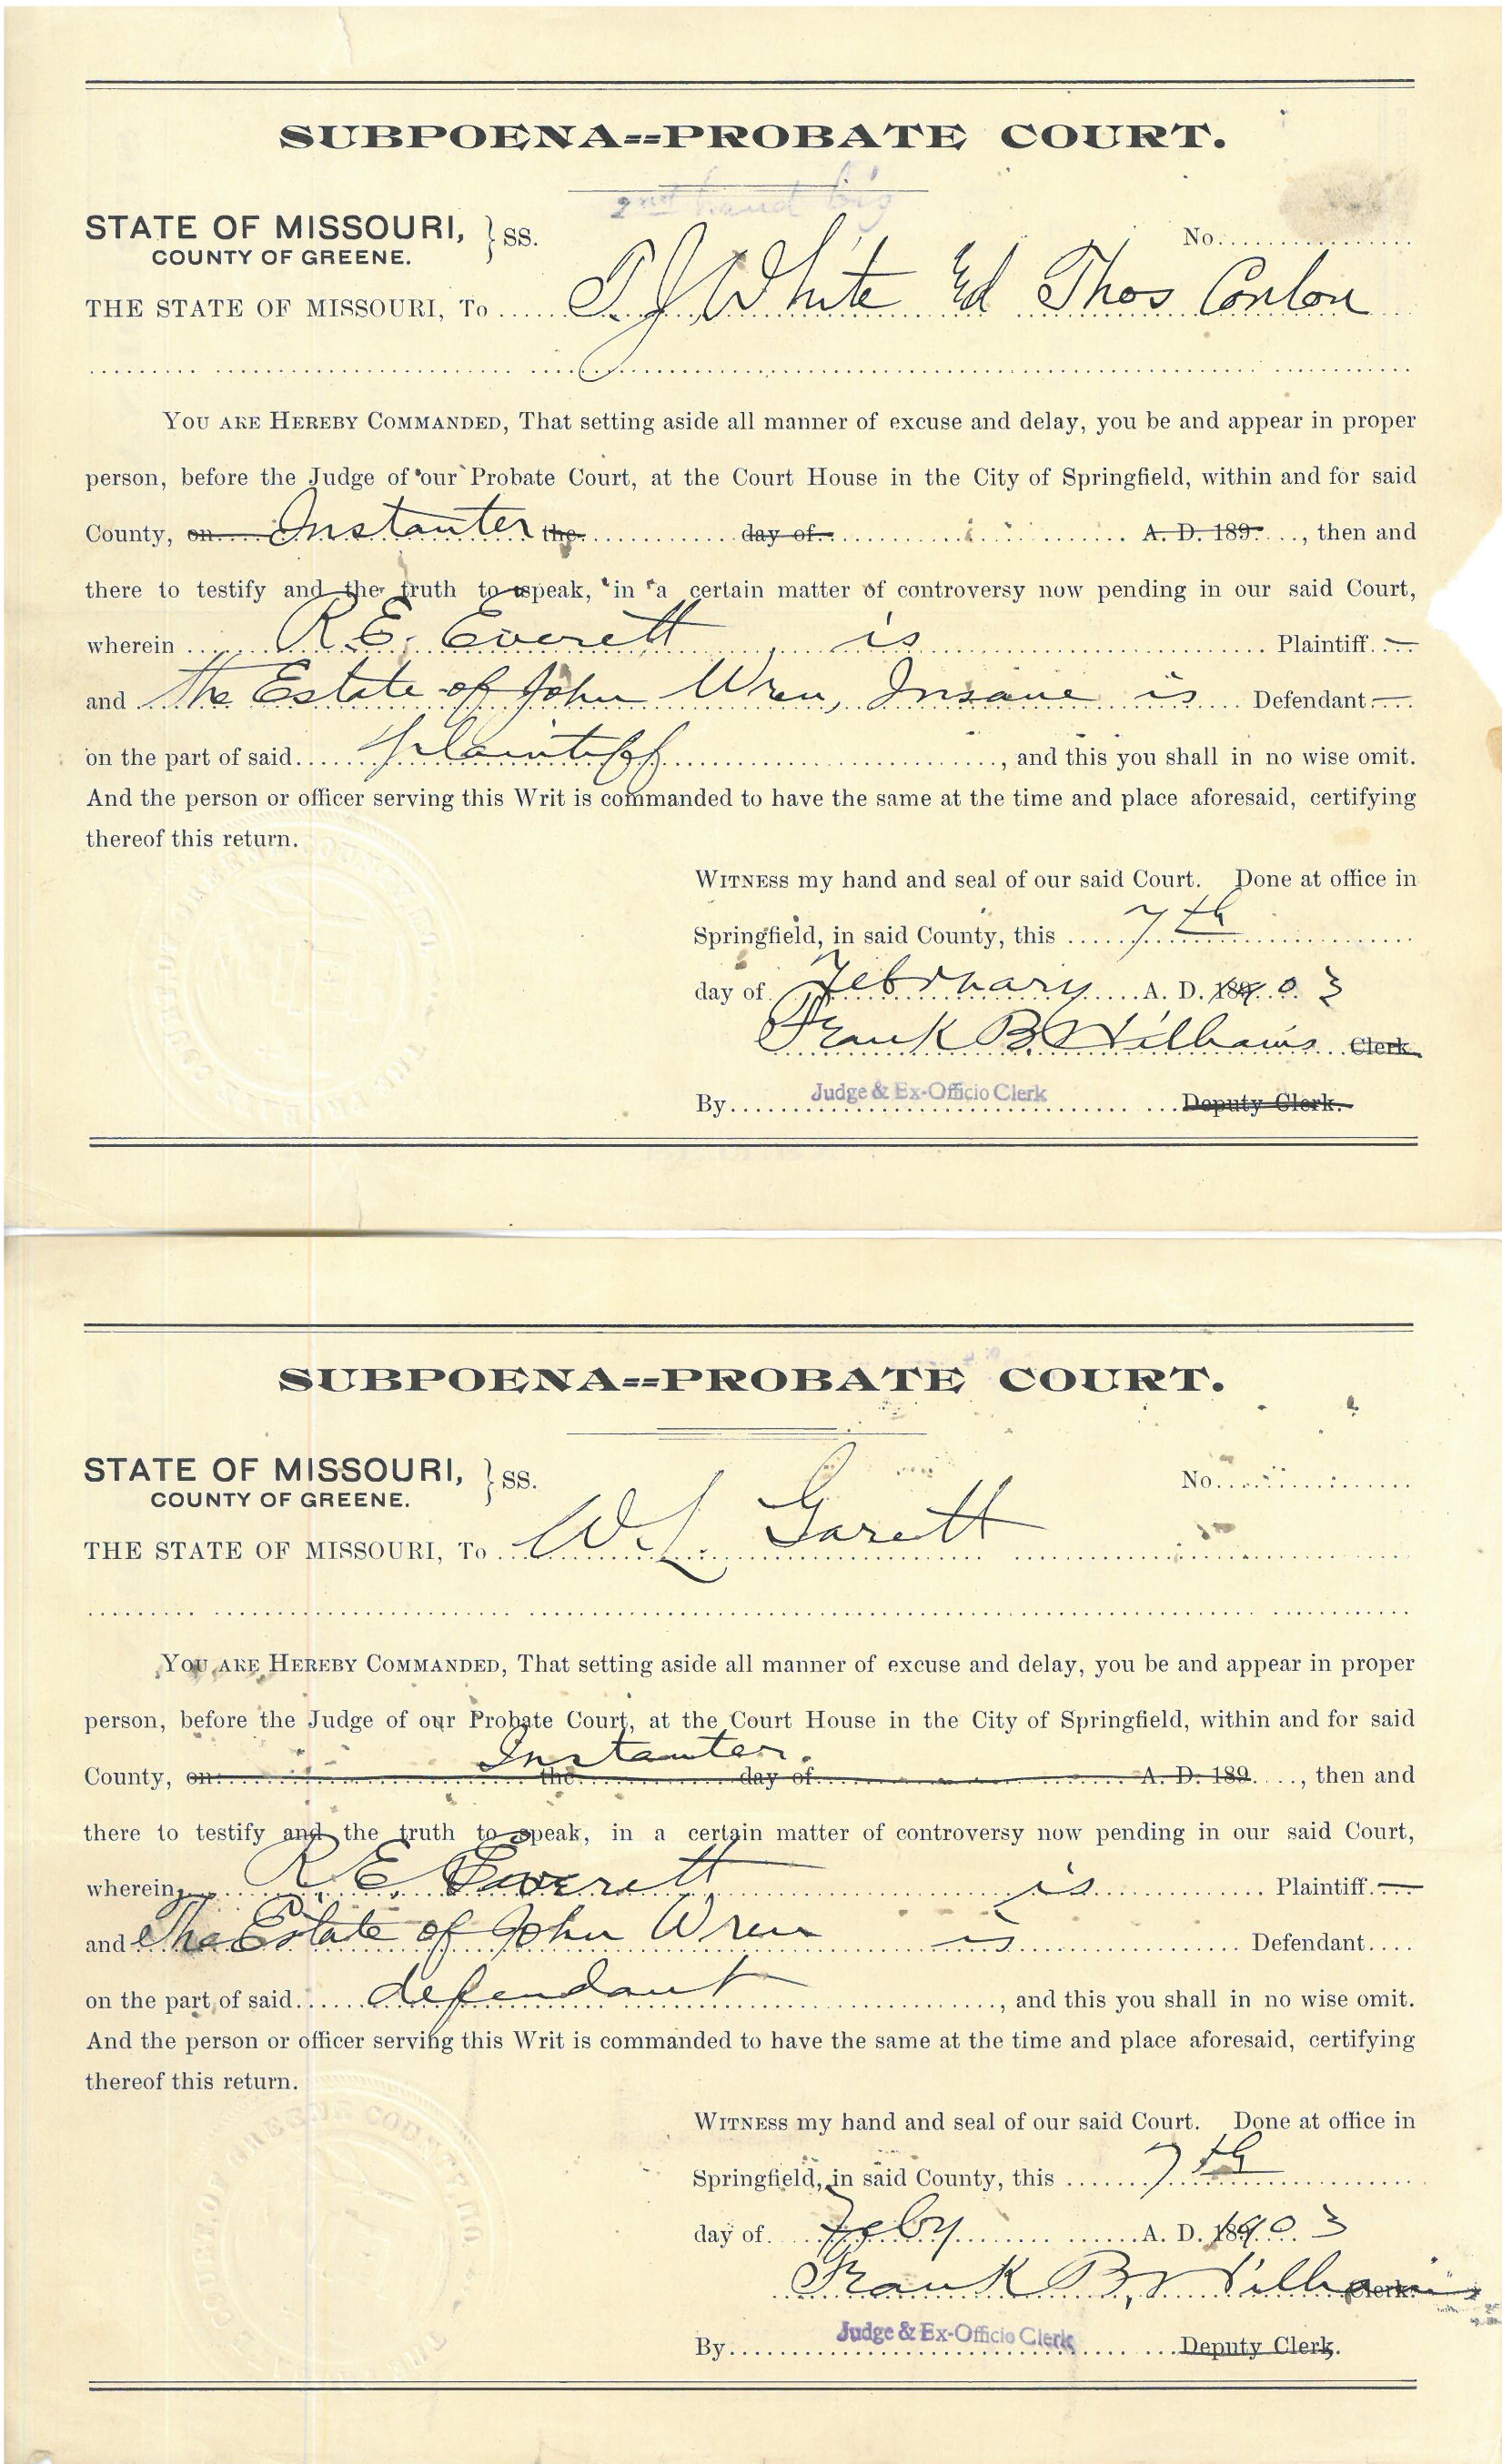 SUBPOENA--PROBATE COURT.
2nd hand big
STATE OF MISSOURI, } SS.
COUNTY OF GREENE.
No.
THE STATE OF MISSOURI, To T. J. White Ed Thos Conlon
YOU ARE HEREBY COMMANDED, That setting aside all manner of excuse and delay, you be and appear in proper
person, before the Judge of our Probate Court, at the Court House in the City of Springfield, within and for said
County, on Instanter the day of A. D. 189 , then and
there to testify and the truth to speak, in a certain matter of controversy now pending in our said Court,
wherein R. E. Everett is Plaintiff
and The Estate of John Wren, Insane is Defendant
on the part of said plaintiff , and this you shall in no wise omit.
And the person or officer serving this Writ is commanded to have the same at the time and place aforesaid, certifying
thereof this return.
WITNESS my hand and seal of our said Court. Done at office in
Springfield, in said County, this 7th
day of February A. D. 1903
Frank B. Williams Clerk
By Judge & Ex-Officio Clerk Deputy Clerk.
SUBPOENA--PROBATE COURT.
STATE OF MISSOURI, } SS.
COUNTY OF GREENE.
No.
THE STATE OF MISSOURI, To W. L. Garett
YOU ARE HEREBY COMMANDED, That setting aside all manner of excuse and delay, you be and appear in proper
person, before the Judge of our Probate Court, at the Court House in the City of Springfield, within and for said
Instanter.
County, on the day of A. D. 189 , then and
there to testify and the truth to speak, in a certain matter of controversy now pending in our said Court,
wherein R. E. Everett is Plaintiff
and The Estate of John Wren is Defendant
on the part of said defendant , and this you shall in no wise omit.
And the person or officer serving this Writ is commanded to have the same at the time and place aforesaid, certifying
thereof this return.
WITNESS my hand and seal of our said Court. Done at office in
Springfield, in said County, this 7th
day of Feby A. D. 1903
Frank B. Williams Clerk.
By Judge & Ex-Officio Clerk Deputy Clerk.